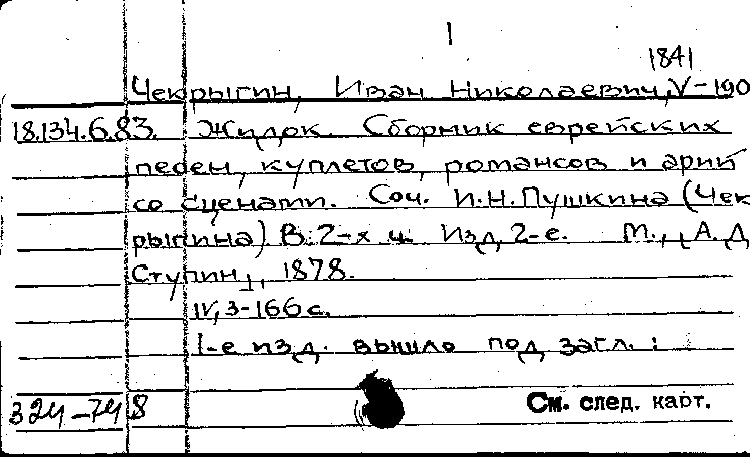 1
1841
Чекрыгин, Иван Николаевич, V-190
18.134.6.83. Жидок. Сборник еврейских
песен, куплетов, романсов и арий
со сценами. Соч. И.Н.Пушкина (Чек
рыгина) В 2-х ч. Изд. 2-е. М., [А.Д.
Ступин], 1878.
IV, 3-166 с.
1-е изд. вышло под загл.:
324-74 8
См. след. карт.